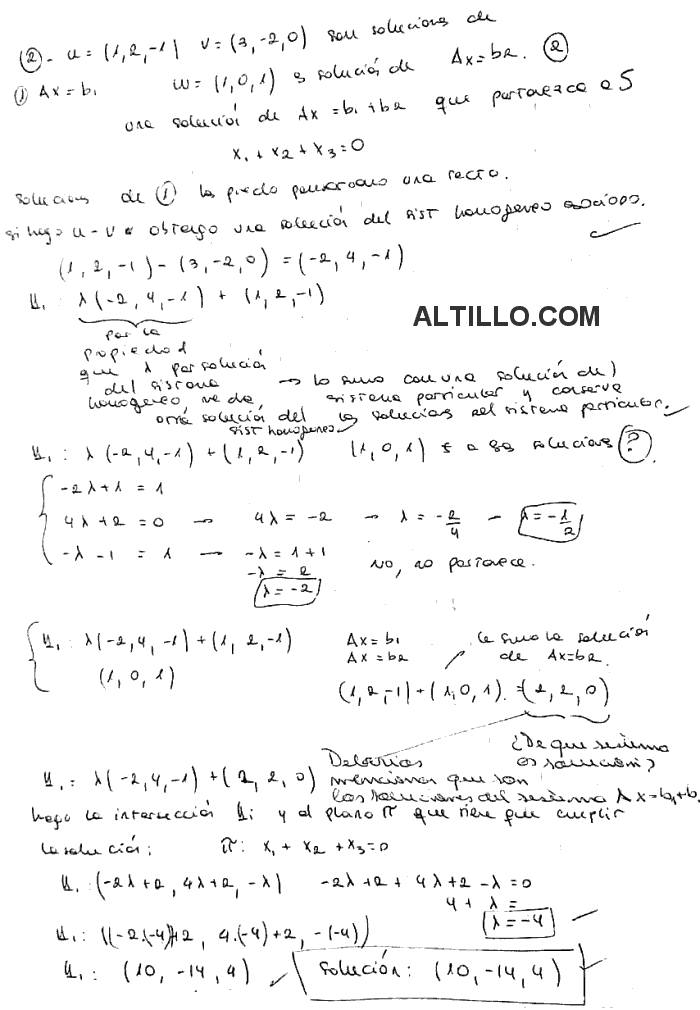 ②- u = (1,2,-1) v = (3,-2,0) son soluciones de
① Ax = b₁ w = (1,0,1) es solución de Ax=b2. ②
una solución de Ax = b₁+b2 que pertenezca a S
x₁ + x₂ + x₃ = 0
Soluciones de ① las puedo pensar como una recta.
si hago u - v obtengo una solución del sist homogeneo asociado.
(1, 2, -1) - (3, -2, 0) = (-2, 4, -1)
𝕃₁: λ(-2, 4, -1) + (1, 2, -1)
ALTILLO.COM
por la
propiedad
que λ por solución
del sistema → lo sumo con una solución del
homogeneo me da sistema particular y conserva
otra solución del las soluciones del sistema particular.
sist homogeneo
𝕃₁: λ(-2, 4, -1) + (1, 2, -1) (1, 0, 1) ∈ a las soluciones ?
-2λ+1 = 1
4λ+2 = 0 → 4λ = -2 → λ = -2/4 → λ = -1/2
-λ -1 = 1 → -λ = 1+1
-λ = 2 No, no pertenece.
λ = -2
𝕃₁: λ(-2, 4, -1) + (1, 2, -1) Ax=b₁ le sumo la solución
Ax=b2 de Ax=b2.
(1, 0, 1) (1,2,-1) + (1,0,1) = (2, 2, 0)
¿De que sistema
es solución?
Deberías
𝕃₁ = λ(-2, 4, -1) + (2, 2, 0) mencionar que son
las soluciones del sistema Ax=b₁+b₂
hago la intersección 𝕃₁ y el plano π que tiene que cumplir
la solución: π: x₁ + x₂ + x₃=0
𝕃₁: (-2λ+2, 4λ+2, -λ) -2λ+2 + 4λ+2 -λ = 0
4 + λ =
λ = -4
𝕃₁: ((-2.(-4)+2, 4.(-4)+2, -(-4))
𝕃₁: (10, -14, 4) Solución: (10, -14, 4)